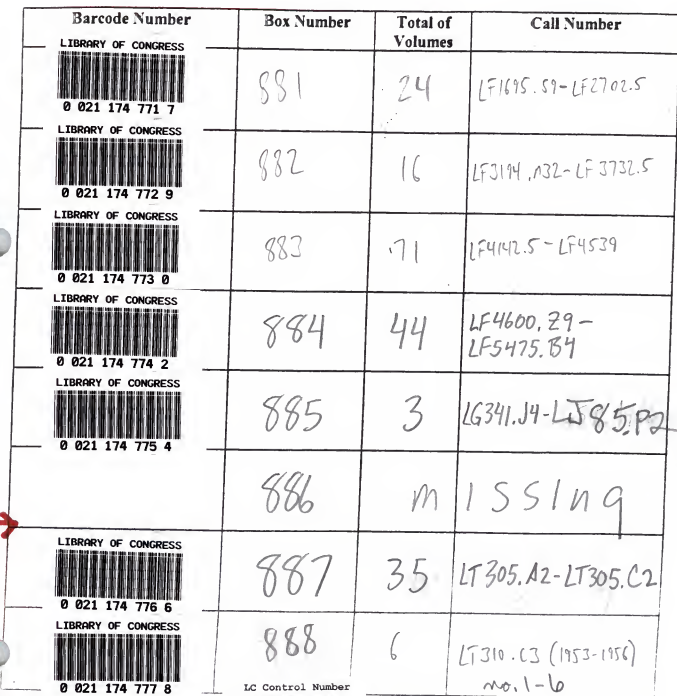 Barcode Number Box Number Total of Volumes Call Number
LIBRARY OF CONGRESS
0 021 174 771 7
881 24 LF1695.S9-LF2702.5
LIBRARY OF CONGRESS
0 021 174 772 9
882 16 LF3194.n32-LF3732.5
LIBRARY OF CONGRESS
0 021 174 773 0
883 71 LF4142.5-LF4539
LIBRARY OF CONGRESS
0 021 174 774 2
884 44 LF4600.Z9-
LF5475.B4
LIBRARY OF CONGRESS
0 021 174 775 4
885 3 LG341.J4-LJ85.P2
886 missing
LIBRARY OF CONGRESS
0 021 174 776 6
887 35 LT305.A2-LT305.C2
LIBRARY OF CONGRESS
0 021 174 777 8
888 6 LT310.C3 (1953-1956)
no. 1-6
LC Control Number